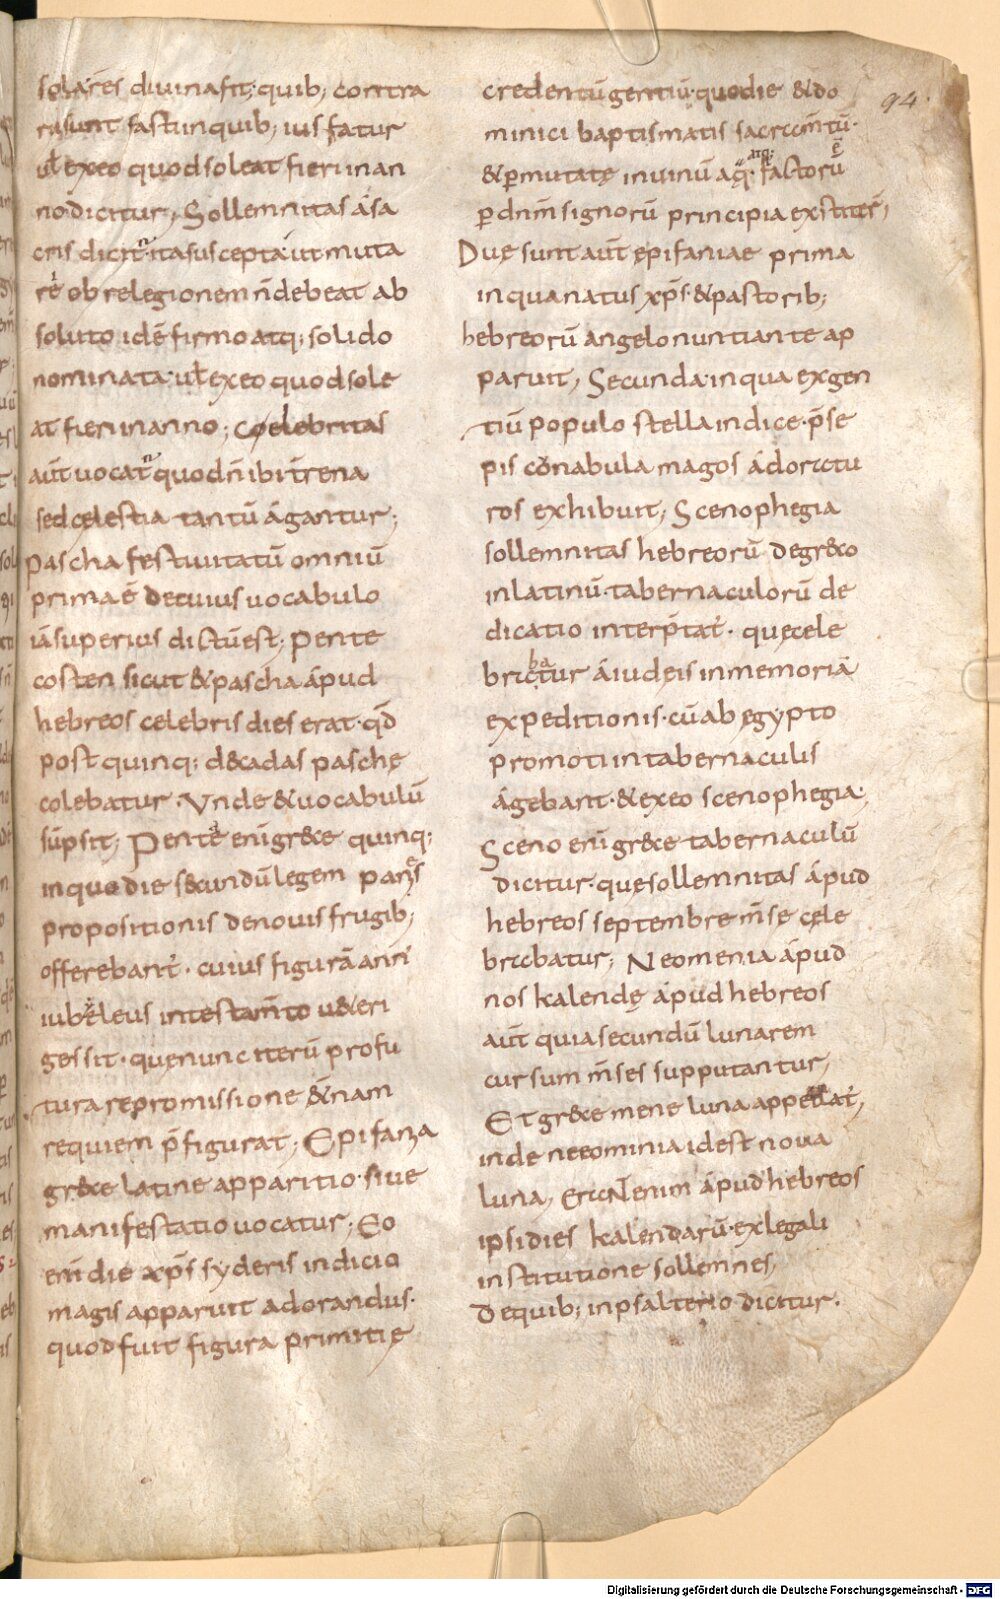 solares diuina fit; quib; contra
ria sunt fasti in quib; ius fatur
uł ex eo quod soleat fieri in an
no dicitur; Sollemnitas a sa
cris dicit̃ ita suscepta ut muta
re ob relegionem ñ debeat ab
soluto id ẽ firmo atq; solido
nominata uł ex eo quod sole
at fieri in anno; Coelebritas
aut̃ uocat̃ quod ñ ibi t̃rena
sed cęlestia tantũ agantur;
Pascha festiuitatũ omniũ
prima ẽ de cuius uocabulo
iã superius dictũ est; Pente
costen sicut & pascha apud
hebreos celebris dies erat qd̃
post quinq; d&cadas paschę
colebatur. Vnde & uocabulũ
sũpsit; Pente enĩ gr&ce quinq;
in quo die s&cundũ legem panes
propositionis de nouis frugib;
offerebant̃. cuius figurã anñ
iubeleus in testam̃to u&eri
gessit. quę nunc iterũ profu
tura repromissione &ñam
requiem p̃figurat; Epifania
gr&ce latine apparitio siue
manifestatio uocatur; Eo
enĩ die xp̃s syderis indicio
magis apparuit adorandus.
quod fuit figura primitię
94.
credentiũ gentiũ. quo die & do
minici baptismatis sacram̃tũ.
& p̱mutatę in uinũ aq̨. factorũ
atq; ẽ
p̱ dñm signorũ principia extiter̃;
Duę sunt aut̃ epifaniae prima
in qua natus xp̃s. & pastorib;
hebreorũ angelo nuntiante ap
paruit; Secunda in qua ex gen
tiũ populo stella indice. p̃se
pis conabula magos adoratu
ros exhibuit; Scenophegia
sollemnitas hebreorũ de gr&co
in latinũ. tabernaculorũ de
dicatio interp̃tat̃. quę cele
brabatur a iudeis in memoriã
expeditionis. cũ ab ęgypto
promoti in tabernaculis
agebant. & ex eo scenophegia;
Sceno enĩ gr&ce tabernaculũ
dicitur. quę sollemnitas apud
hebreos septembre m̃se cele
brabatur; Neomenia apud
nos kalendę apud hebreos
aut̃ quia secundũ lunarem
cursum m̃ses supputantur;
Et gr&ce mene luna appellat̃;
inde neominia id est noua
luna; Erant enim apud hebreos
ipsi dies kalendarũ. ex legali
institutione sollemnes,
De quib; in psalterio dicitur.
Digitalisierung gefördert durch die Deutsche Forschungsgemeinschaft - DFG